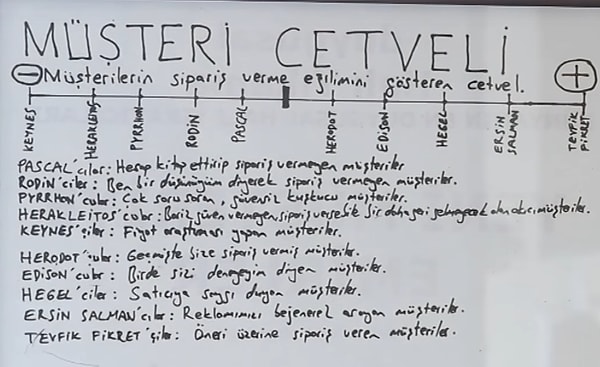 MÜŞTERİ CETVELİ
− Müşterilerin sipariş verme eğilimini gösteren cetvel. +
KEYNES HERAKLEİTOS PYRRHON RODİN PASCAL HERODOT EDİSON HEGEL ERSİN SALMAN TEVFİK FİKRET
PASCAL'cılar: Hesap kitap ettirip sipariş vermeyen müşteriler
RODİN'ciler: Ben bir düşüneyim diyerek sipariş vermeyen müşteriler.
PYRRHON'cular: Çok soru soran, güvensiz kuşkucu müşteriler.
HERAKLEİTOS'cular: güven vermeyen, sipariş verse bir daha geri müşteriler.
KEYNES'çiler: Fiyat araştırması yapan müşteriler.
HERODOT'çular: Geçmişte bize sipariş vermiş müşteriler.
EDİSON'cular: Birde sizi deneyeyim diyen müşteriler.
HEGEL'ciler: Satıcıya saygı duyan müşteriler.
ERSİN SALMAN'cılar: Reklamımızı beğenerek arayan müşteriler.
TEVFİK FİKRET'çiler: Öneri üzerine sipariş veren müşteriler.